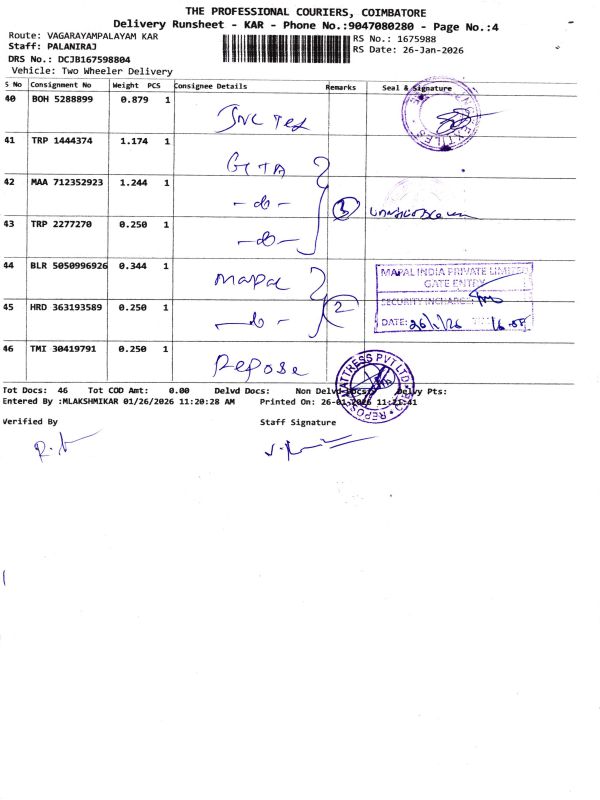 THE PROFESSIONAL COURIERS, COIMBATORE
Delivery Runsheet - KAR - Phone No.:9047080280 - Page No.:4
Route: VAGARAYAMPALAYAM KAR
RS No.: 1675988
Staff: PALANIRAJ
RS Date: 26-Jan-2026
DRS No.: DCJB167598804
Vehicle: Two Wheeler Delivery
S No Consignment No Weight PCS Consignee Details Remarks Seal & Signature
40 BOH 5288899 0.879 1
41 TRP 1444374 1.174 1
42 MAA 712352923 1.244 1 - do -
3
43 TRP 2277270 0.250 1 - do -
44 BLR 5050996926 0.344 1 Mapal
MAPAL INDIA PRIVATE LIMITED
GATE ENTRY
SECURITY INCHARGE:
DATE: 26/1/26
45 HRD 363193589 0.250 1 - do - 2
46 TMI 30419791 0.250 1 Repose
REPOSE MATTRESS PVT LTD
Tot Docs: 46 Tot COD Amt: 0.00 Delvd Docs: Non Delvd Docs: Delvy Pts:
Entered By :MLAKSHMIKAR 01/26/2026 11:20:28 AM Printed On: 26-01-2026 11:21:41
Verified By Staff Signature